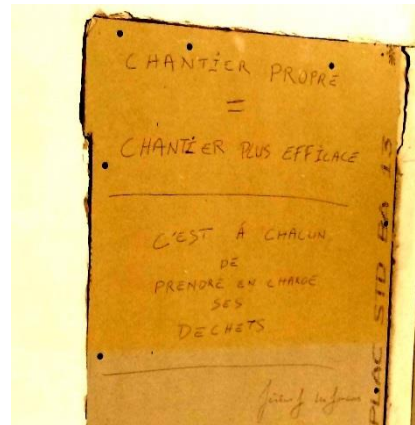 CHANTIER PROPRE
=
CHANTIER PLUS EFFICACE
C'EST À CHACUN
DE
PRENDRE EN CHARGE
SES
DECHETS
PLAC STD BA 13